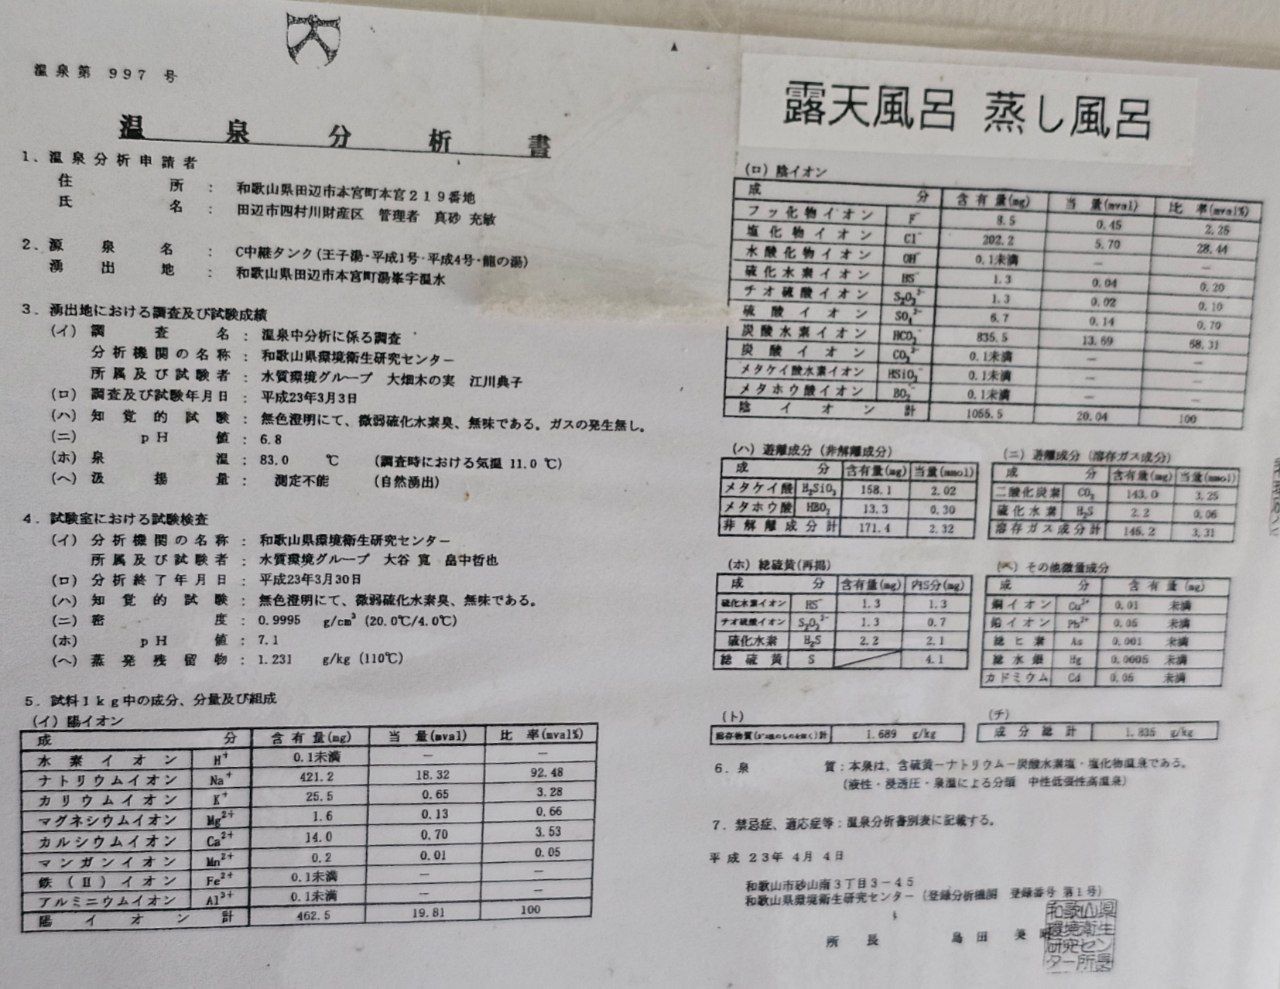 温泉第 997 号
温泉分析書
1．温泉分析申請者
住所 ： 和歌山県田辺市本宮町本宮219番地
氏名 ： 田辺市四村川財産区 管理者 真砂 充敏
2．源泉名 ： C中継タンク(王子湯・平成1号・平成4号・龍の湯)
湧出地 ： 和歌山県田辺市本宮町湯峯字温水
3．湧出地における調査及び試験成績
(イ) 調査名 ： 温泉中分析に係る調査
分析機関の名称 ： 和歌山県環境衛生研究センター
所属及び試験者 ： 水質環境グループ 大畑木の実 江川典子
(ロ) 調査及び試験年月日 ： 平成23年3月3日
(ハ) 知覚的試験 ： 無色澄明にて、微弱硫化水素臭、無味である。ガスの発生無し。
(ニ) pH値 ： 6.8
(ホ) 泉温 ： 83.0 ℃ (調査時における気温 11.0 ℃)
(ヘ) 汲揚量 ： 測定不能 (自然湧出)
4．試験室における試験検査
(イ) 分析機関の名称 ： 和歌山県環境衛生研究センター
所属及び試験者 ： 水質環境グループ 大谷 寛 畠中哲也
(ロ) 分析終了年月日 ： 平成23年3月30日
(ハ) 知覚的試験 ： 無色澄明にて、微弱硫化水素臭、無味である。
(ニ) 密度 ： 0.9995 g/cm³ (20.0℃/4.0℃)
(ホ) pH値 ： 7.1
(ヘ) 蒸発残留物 ： 1.231 g/kg (110℃)
5．試料1kg中の成分、分量及び組成
(イ) 陽イオン
成分 含有量(mg) 当量(mval) 比率(mval%)
水素イオン H⁺ 0.1未満 — —
ナトリウムイオン Na⁺ 421.2 18.32 92.48
カリウムイオン K⁺ 25.5 0.65 3.28
マグネシウムイオン Mg²⁺ 1.6 0.13 0.66
カルシウムイオン Ca²⁺ 14.0 0.70 3.53
マンガンイオン Mn²⁺ 0.2 0.01 0.05
鉄(Ⅱ)イオン Fe²⁺ 0.1未満 — —
アルミニウムイオン Al³⁺ 0.1未満 — —
陽イオン計 462.5 19.81 100
露天風呂 蒸し風呂
(ロ) 陰イオン
成分 含有量(mg) 当量(mval) 比率(mval%)
フッ化物イオン F⁻ 8.5 0.45 2.25
塩化物イオン Cl⁻ 202.2 5.70 28.44
水酸化物イオン OH⁻ 0.1未満 — —
硫化水素イオン HS⁻ 1.3 0.04 0.20
チオ硫酸イオン S₂O₃²⁻ 1.3 0.02 0.10
硫酸イオン SO₄²⁻ 6.7 0.14 0.70
炭酸水素イオン HCO₃⁻ 835.5 13.69 68.31
炭酸イオン CO₃²⁻ 0.1未満 — —
メタケイ酸水素イオン HSiO₃⁻ 0.1未満 — —
メタホウ酸イオン BO₂⁻ 0.1未満 — —
陰イオン計 1055.5 20.04 100
(ハ) 遊離成分 (非解離成分)
成分 含有量(mg) 当量(mmol)
メタケイ酸 H₂SiO₃ 158.1 2.02
メタホウ酸 HBO₂ 13.3 0.30
非解離成分計 171.4 2.32
(ニ) 遊離成分 (溶存ガス成分)
成分 含有量(mg) 当量(mmol)
二酸化炭素 CO₂ 143.0 3.25
硫化水素 H₂S 2.2 0.06
溶存ガス成分計 145.2 3.31
(ホ) 総硫黄(再掲)
成分 含有量(mg) 内S分(mg)
硫化水素イオン HS⁻ 1.3 1.3
チオ硫酸イオン S₂O₃²⁻ 1.3 0.7
硫化水素 H₂S 2.2 2.1
総硫黄 S 4.1
(ヘ) その他微量成分
成分 含有量(mg)
銅イオン Cu²⁺ 0.01 未満
鉛イオン Pb²⁺ 0.05 未満
総ヒ素 As 0.001 未満
総水銀 Hg 0.0005 未満
カドミウム Cd 0.05 未満
(ト)
溶存物質(ガス性のものを除く)計 1.689 g/kg
(チ)
成分総計 1.835 g/kg
6．泉質：本泉は、含硫黄－ナトリウム－炭酸水素塩・塩化物温泉である。
(液性・浸透圧・泉温による分類 中性低張性高温泉)
7．禁忌症、適応症等：温泉分析書別表に記載する。
平成 23年 4月 4日
和歌山市砂山南3丁目3－45
和歌山県環境衛生研究センター (登録分析機関 登録番号 第1号)
所長 島田
和歌山県
環境衛生
研究セン
ター所長